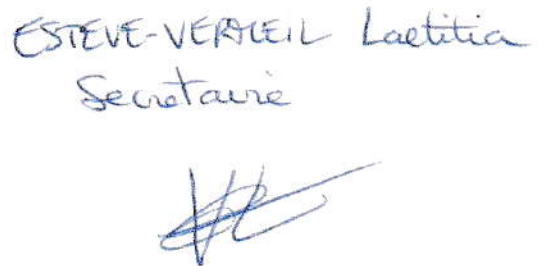 ESTEVE-VERNEIL Laetitia
Secretaire